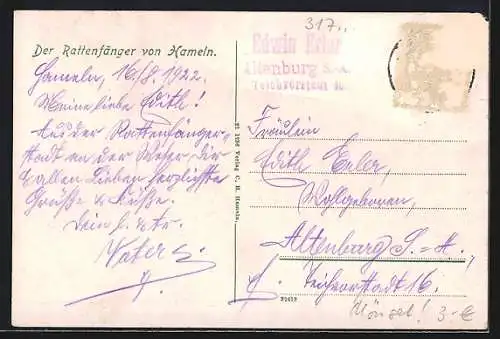 317.
Der Rattenfänger von Hameln.
Edwin Erler
Altenburg S.-A.
Teichvorstadt 16.
Hameln, 16/8. 1922.
Meine liebe Edith!
Aus der Rattenfänger-
stadt an der Weser Dir
& allen Lieben herzlichste
Grüße & Küsse.
Dein l.
Vater
Verlag C. H. Hameln.
Fräulein
Edith Erler,
Wohlgeboren,
Altenburg S.-A.,
Teichvorstadt 16.
Hänsel! 3.-€